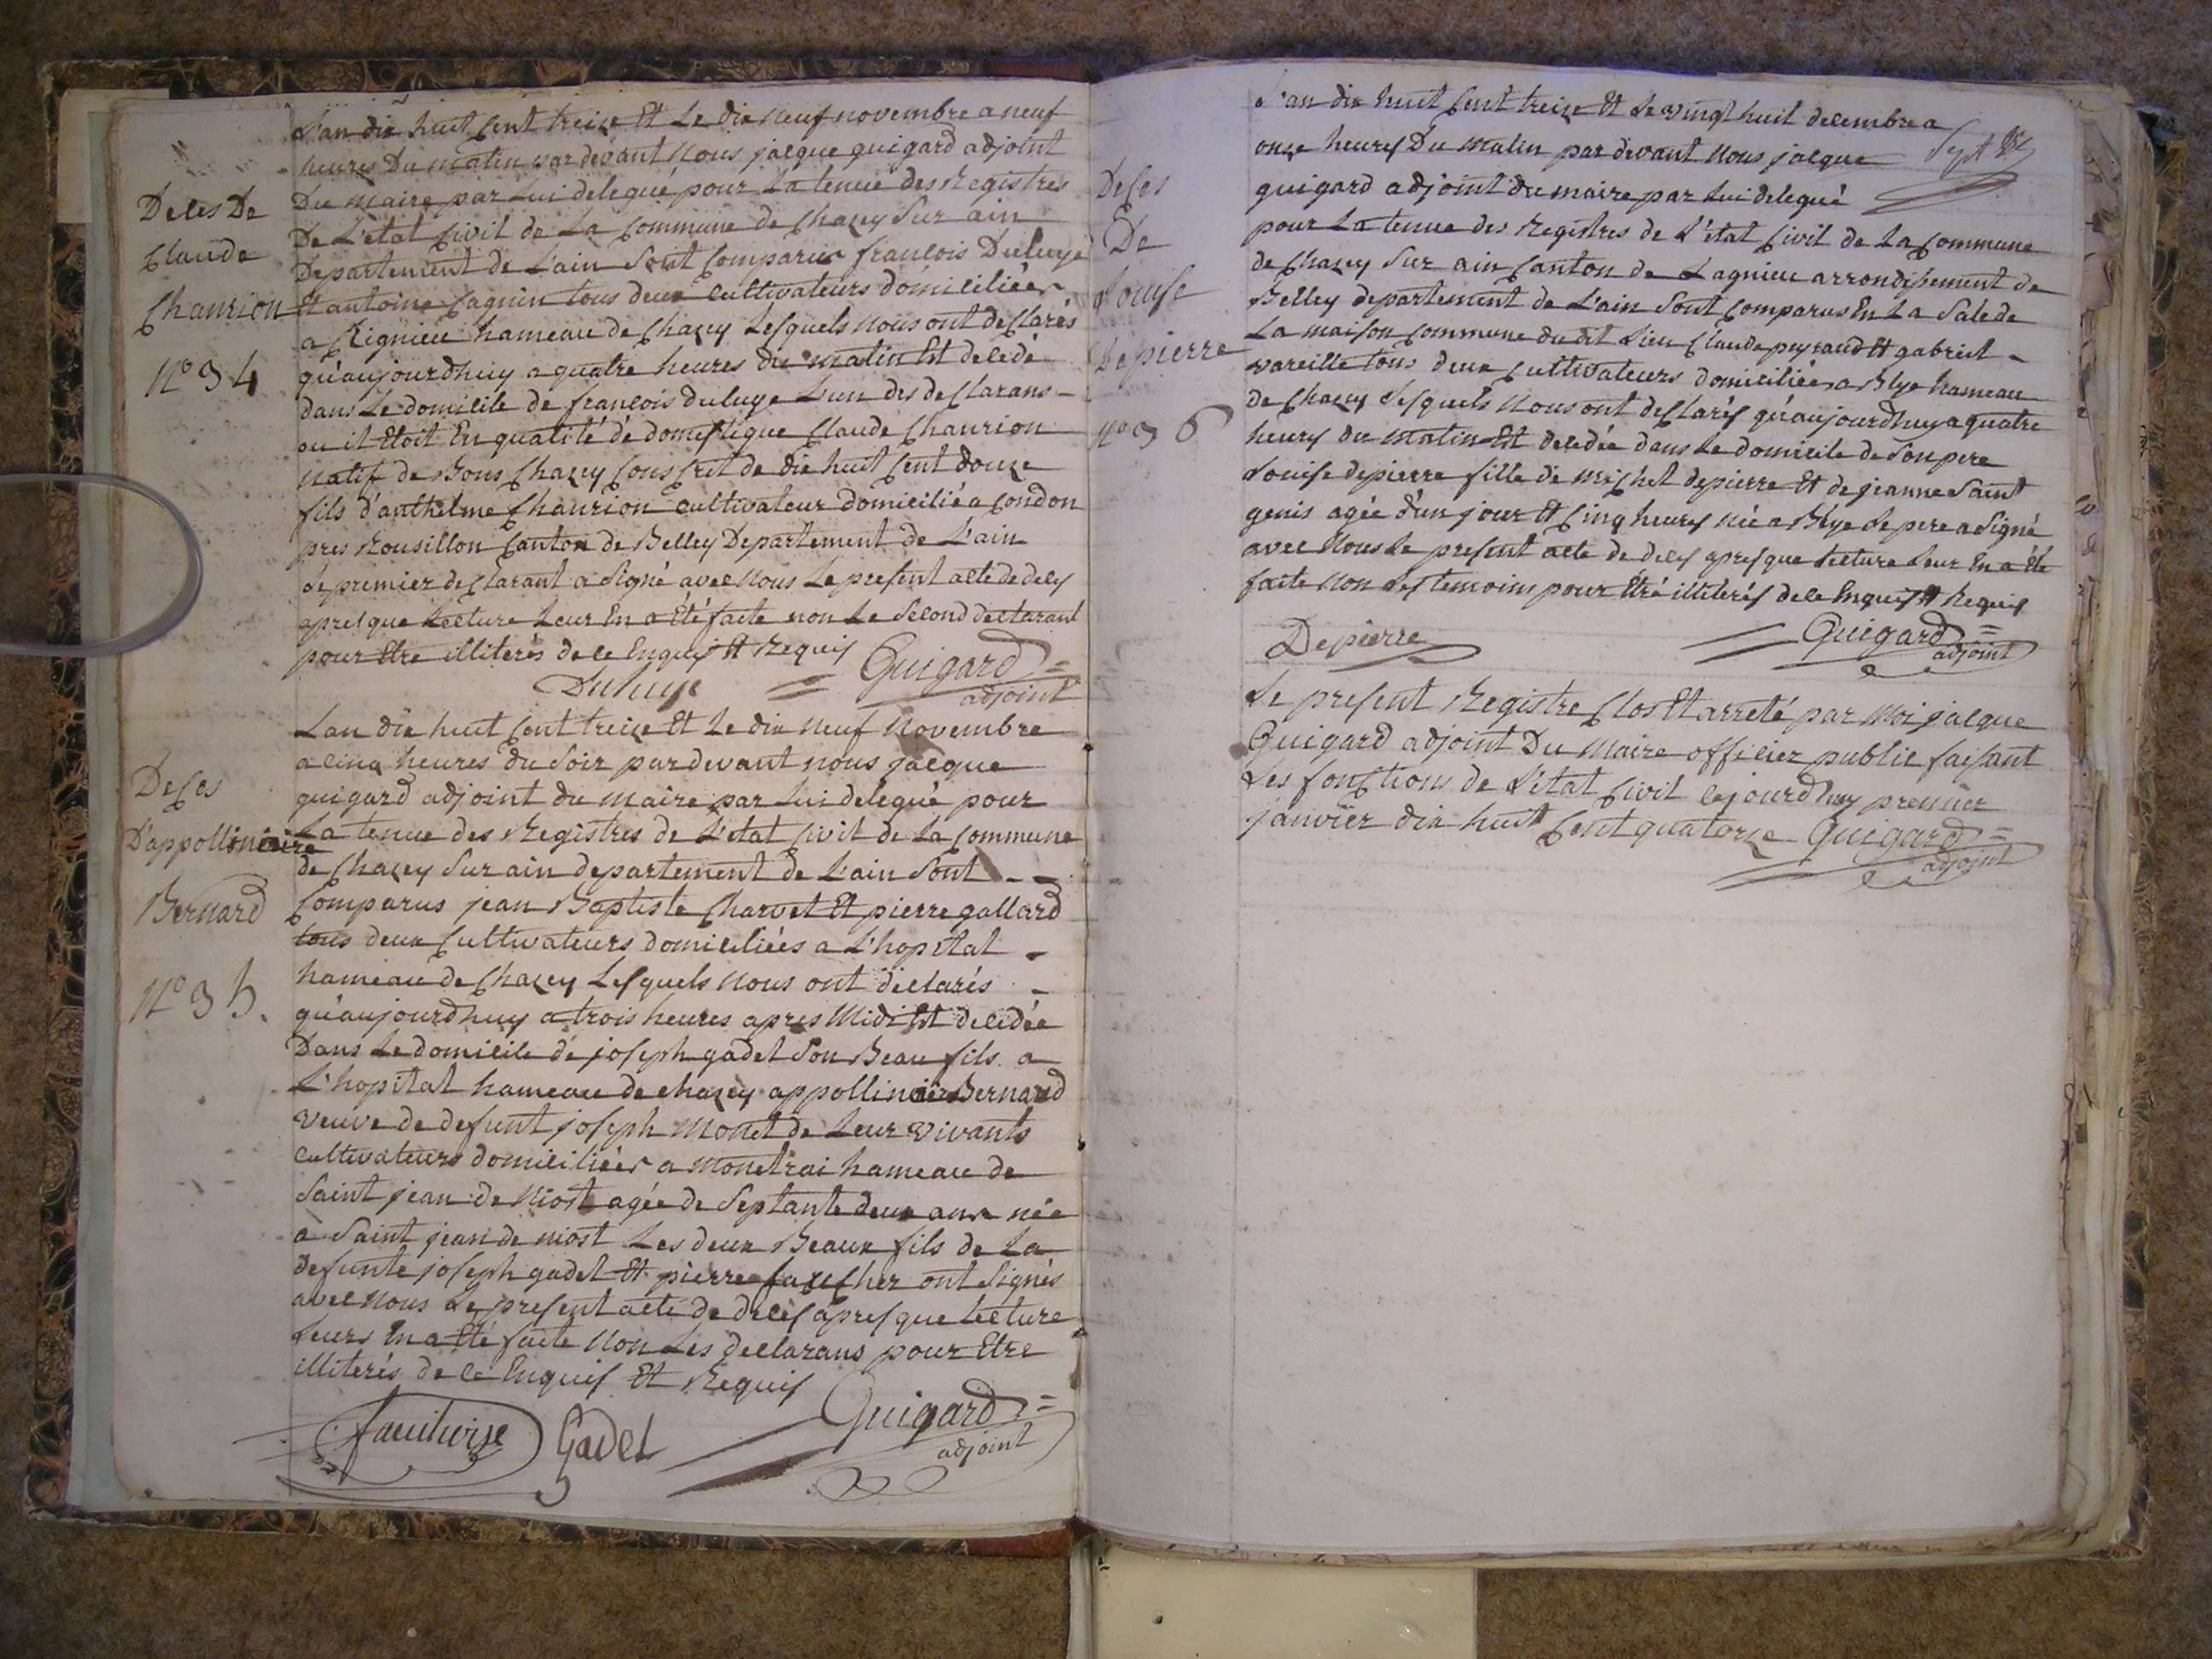 Deces De
Claude
Chanrion
N° 34
L'an dix huit Cent treize Et Le dix neuf novembre a neuf
heures Du matin par devant Nous jacque guigard adjoint
Du Maire par Lui delegué pour La tenue des Registres
De L'etat Civil de La Commune de Chazey Sur ain
Departement de L'ain Sont Comparus francois Duluye
Et antoine Cagnin tous deux cultivateurs domiciliées
a Rignieu hameau de Chazey Lesquels Nous ont declarés
qu'aujourdhuy a quatre heures du matin Est decedé
dans Le domicile de francois duluye L'un des declarans -
ou il Etoit En qualité de domestique Claude Chanrion
natif de Bons Chazey Conscrit de dix huit Cent douze
fils d'anthelme Chanrion cultivateur domicilié a Condon
pres Rousillon Canton de Belley Departement de L'ain
Le premier declarant a Signé avec Nous Le present acte de deces
apres que Lecture Leur En a Eté faite non Le Second declarant
pour Etre illiterés de ce Enquis Et Requis
Duluye
Guigard
adjoint
Deces
D'appollinaire
Bernard
N° 35.
Lan dix huit Cent treize Et Le dix neuf Novembre
a cinq heures du Soir par devant nous jacque
guigard adjoint du maire par Lui delegué pour
La tenue des Registres de L'etat Civil de La Commune
de Chazey Sur ain departement de L'ain Sont - -
Comparus jean Baptiste Charvet Et pierre gallard
tous deux Cultivateurs domiciliées a L'hopital -
hameau de Chazey Lesquels Nous ont declarés -
qu'aujourdhuy a trois heures apres Midi Est decedée
Dans Le domicile de joseph gadet Son Beau fils a
L'hopital hameau de chazey appollinaire Bernard
veuve de defunt joseph Monet de Leur vivants
cultivateurs domiciliées a monetrai hameau de
Saint jean de Niost agée de Septante deux ans née
a Saint jean de niost Les deux Beaux fils de La
defunte joseph gadet Et pierre faucher ont Signés
avec Nous Le present acte de deces apres que Lecture
Leurs En a Eté faite Non Les declarans pour Etre
illiterés de ce Enquis Et Requis
Gadet
Guigard
adjoint
Deces
De
Louise
Depierre
N° 36
L'an dix huit Cent treize Et Le vingt huit decembre a
onze heures Du Matin par devant Nous jacque
guigard adjoint du maire par Lui delegué
pour La tenue des Registres de L'etat Civil de La Commune
de Chazey Sur ain Canton de Lagnieu arrondisement de
Belley departement de L'ain Sont Comparus En La Sale de
La maison Commune du dit Lieu Claude peyraud Et gabriel -
vareille tous deux Cultivateurs domiciliées a Blye hameau
de Chazey Lesquels Nous ont declarés qu'aujourdhuy a quatre
heures du Matin Est decedée dans Le domicile de Son pere
Louise depierre fille de michel depierre Et de jeanne Saint
genis agée d'un jour Et Cinq heures née a Blye Le pere a Signé
avec Nous Le present acte de deces apres que Lecture Leur En a Eté
faite Non Les temoins pour Etre illiterés de ce Enquis Et Requis
Depierre
Guigard
adjoint
Le present Registre Clos Et arreté par Moi jacque
Guigard adjoint Du Maire officier public faisant
Les fonctions de L'etat Civil cejourdhuy premier
janvier dix huit Cent quatorze
Guigard
adjoint